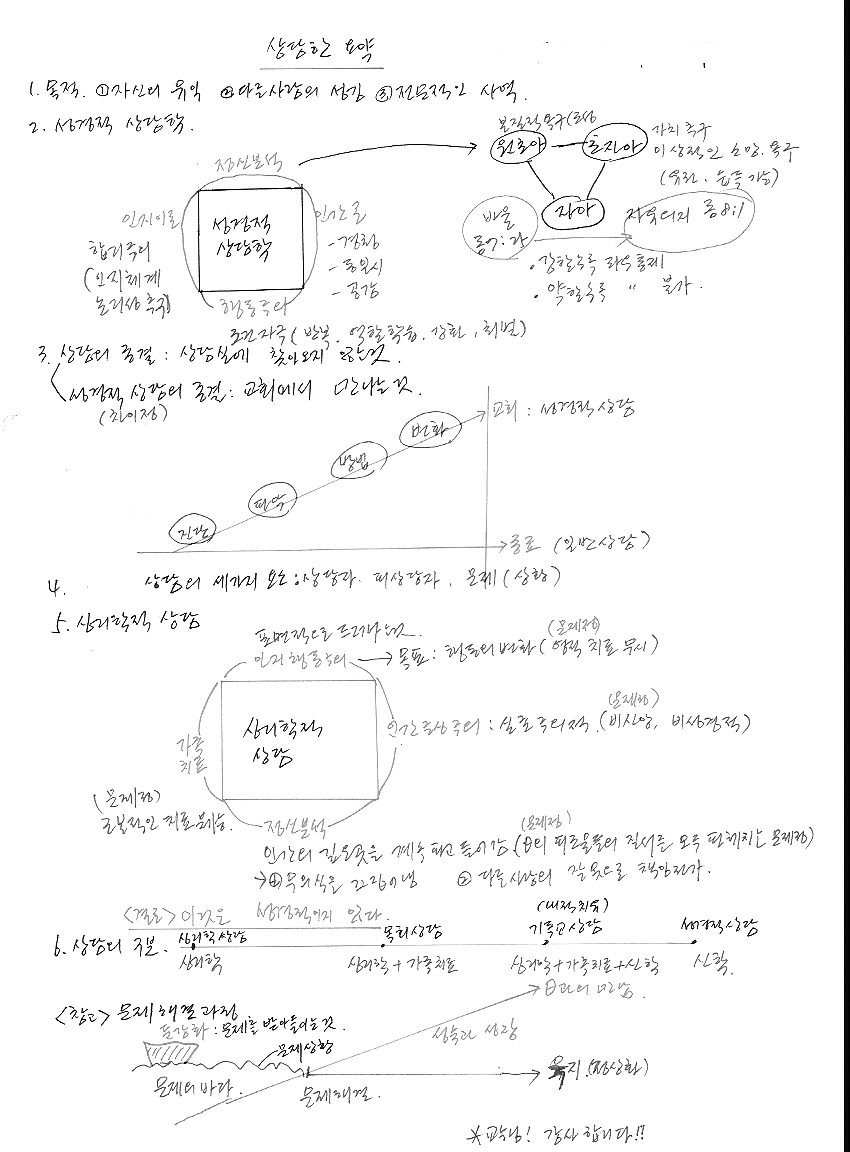 상담학 요약
1. 목적. ①자신의 유익 ②다른사람의 성장 ③전문적인 사역.
2. 성경적 상담학.
정신분석
인지이론
합리주의
(인지체계
논리성 촉구)
성경적
상담학
인간론
-경청
-동일시
-공감
행동주의
조건자극 (반복, 역할학습, 강화, 처벌)
본질적욕구(본성
원초아
초자아
자아
가치 촉구
이상적인 소망. 욕구
(유전. 습득 가능)
바울
롬7:
자유의지 롬8:1
• 강할수록 좌우통제
• 약할수록 " 불가.
3. 상담의 종결 : 상담실에 찾아오지 않는것.
성경적 상담의 종결: 교회에서 만나는것.
(차이점)
교회 : 성경적상담
변화
방법
파악
진단
종료 (일반상담)
4. 상담의 세가지 요소: 상담자. 피상담자. 문제(상황)
5. 심리학적 상담
표면적으로 드러나는것.
(문제점)
인지행동주의 → 목표 : 행동의 변화 (영적 치료 무시)
심리학적
상담
(문제점)
인간중심주의 : 실존주의적. (비신앙, 비성경적)
가족
치료
(문제점)
근본적인 치료 불가능.
정신분석
(문제점)
인간의 깊은곳을 계속 파고 들어감 (의 피조물들의 질서를 모두 파헤치는 문제점)
→① 무의식을 끄집어냄 ② 다른사람의 잘못으로 책임전가.
<결론> 이것은 성경적이지 않다.
6. 상담의 구분.
심리학상담
심리학
목회상담
심리학+가족치료
(내적치유)
기독교상담
심리학+가족치료+신학
성경적상담
신학.
<참고> 문제해결과정
둔감화 : 문제를 받아들이는것.
문제상황
문제의 바다.
문제해결.
성숙과 성장
θ과의 만남
육지 (정상화)
*교수님! 감사합니다!!